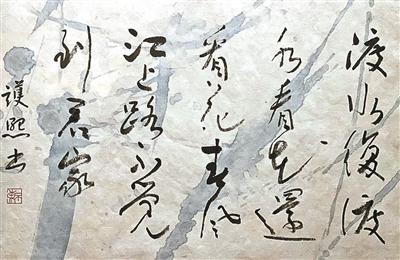 渡水復渡
水看花還
看花春風
江上路不覺
到君家
護熙書